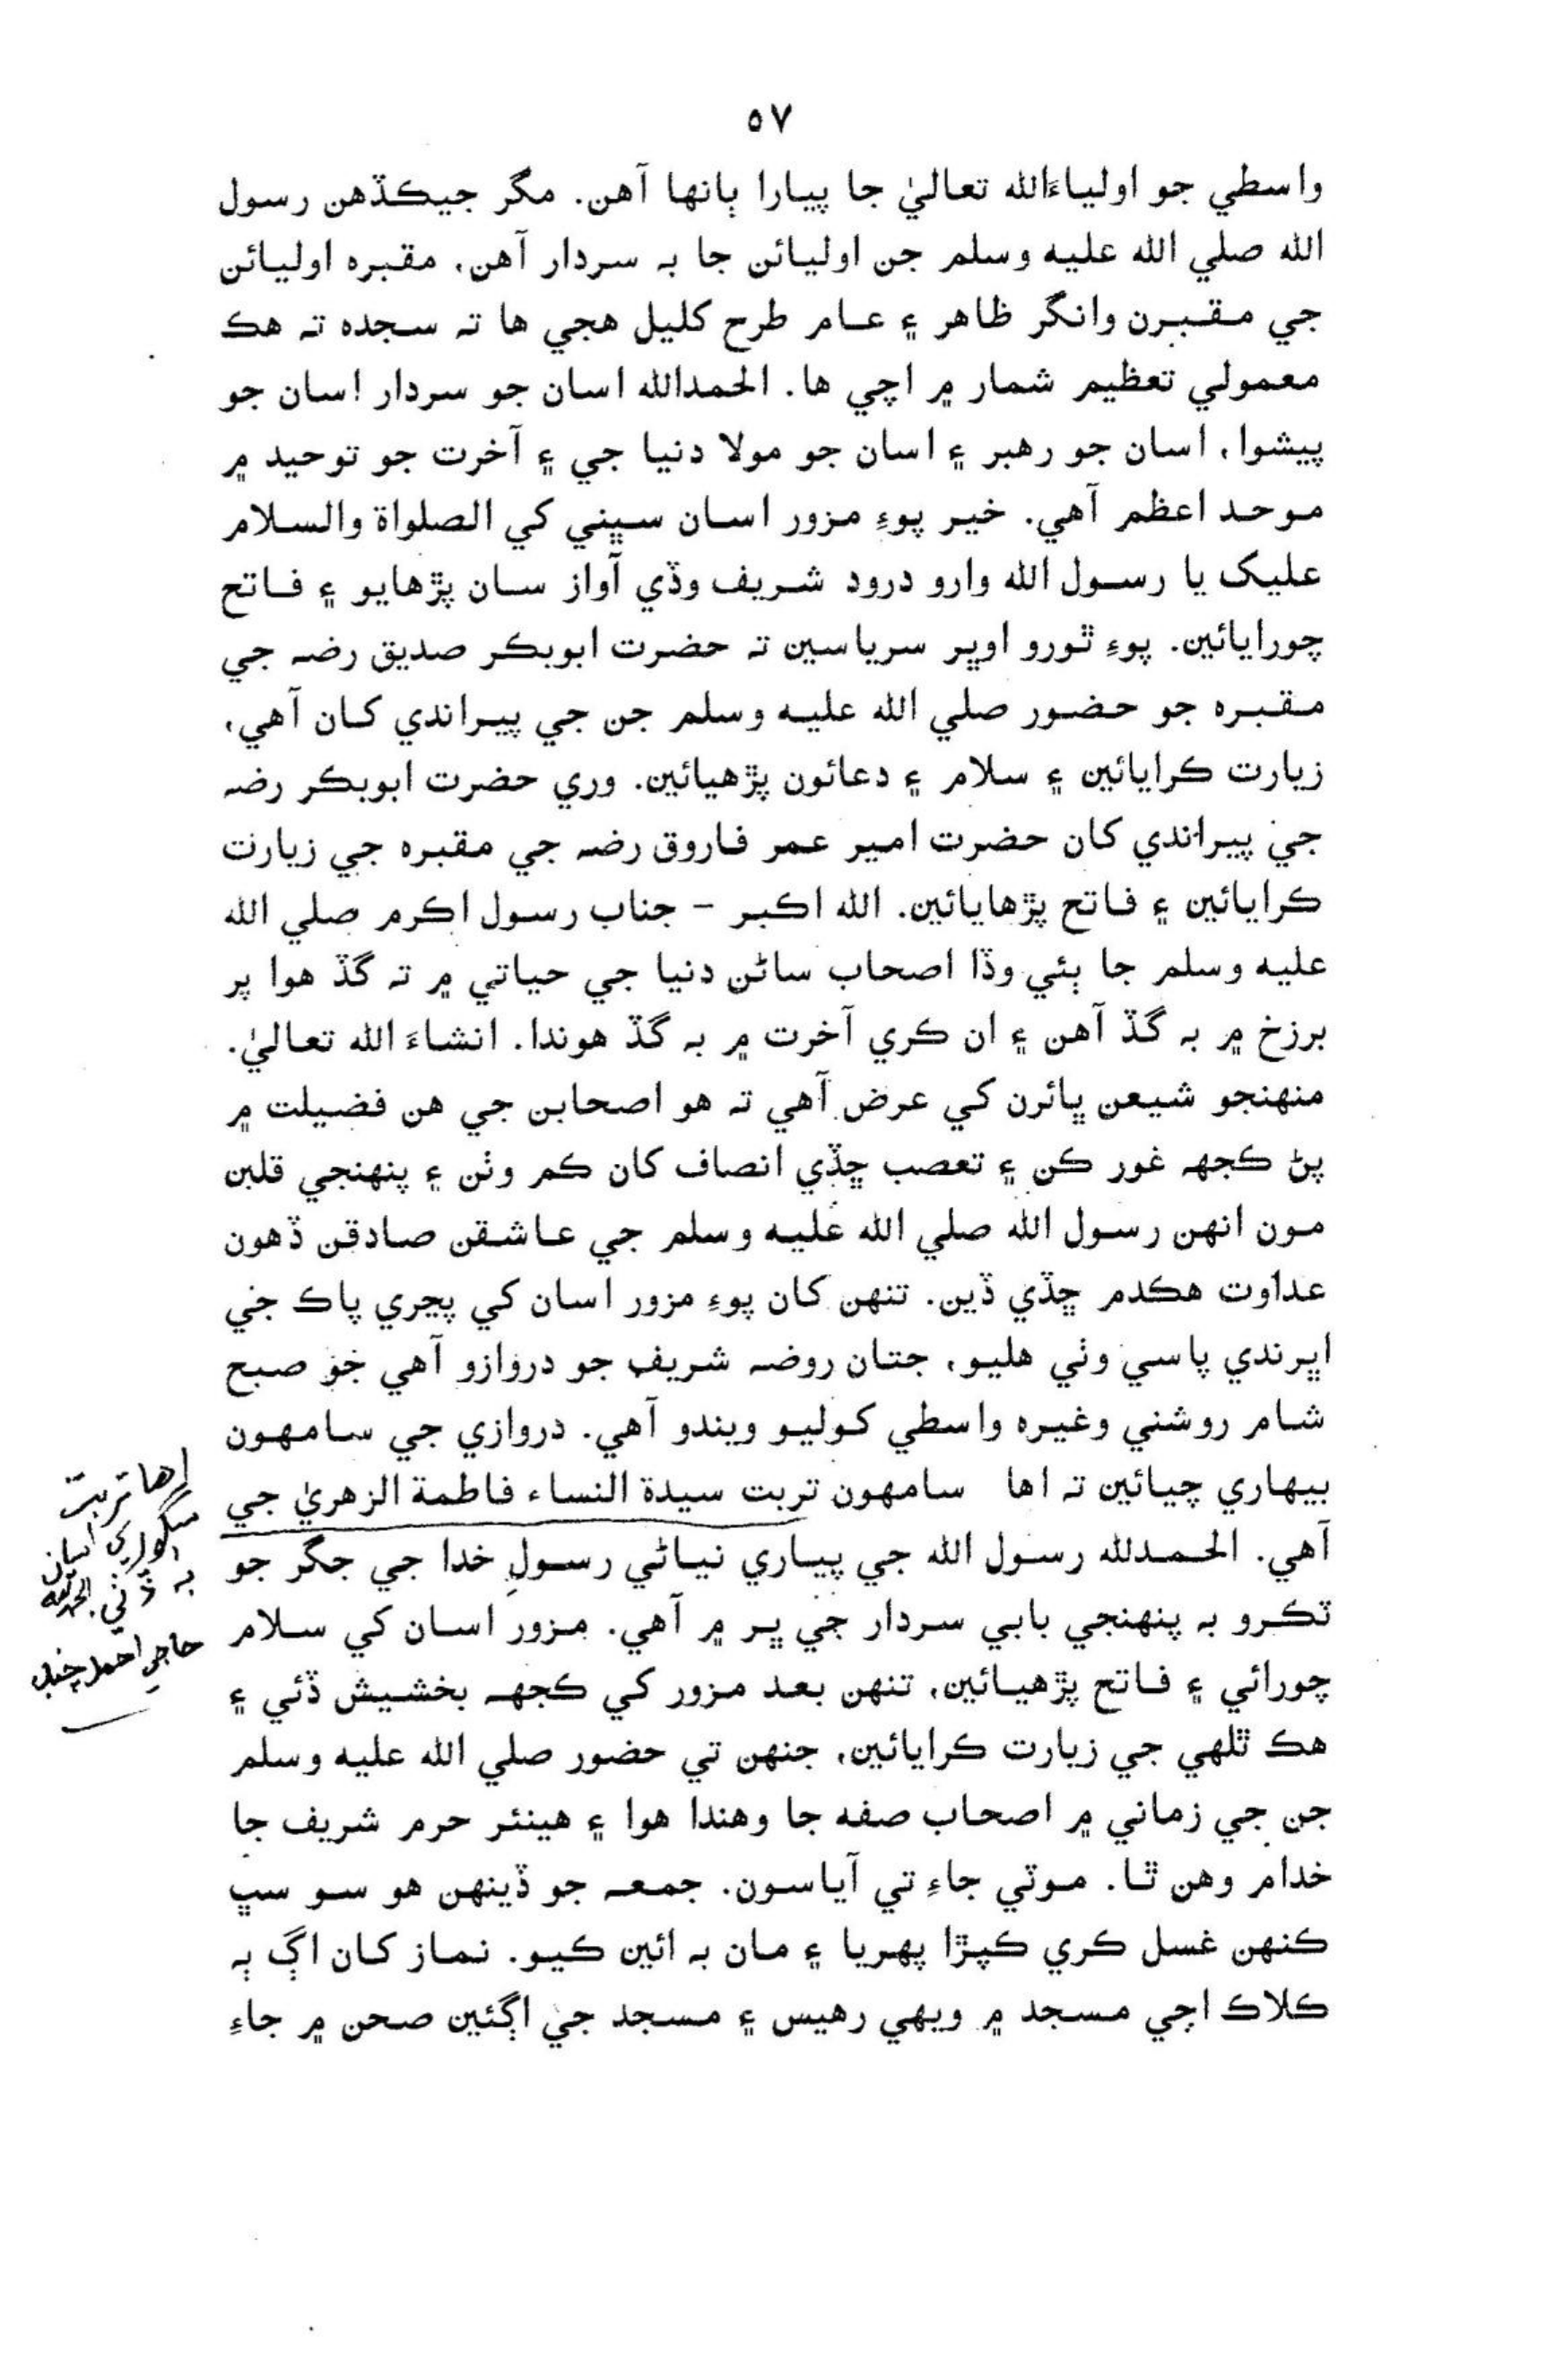 ٥٧
واسطي جو اولياءَالله تعاليٰ جا پيارا ٻانها آهن. مگر جيڪڏهن رسول
الله صلي الله عليه وسلم جن اوليائن جا بہ سردار آهن، مقبره اوليائن
جي مقبرن وانگر ظاهر ۽ عام طرح کليل هجي ها تہ سجده تہ هڪ
معمولي تعظيم شمار ۾ اچي ها. الحمدالله اسان جو سردار اسان جو
پيشوا، اسان جو رهبر ۽ اسان جو مولا دنيا جي ۽ آخرت جو توحيد ۾
موحد اعظم آهي. خير پوءِ مزور اسان سڀني کي الصلواة والسلام
عليک يا رسول الله وارو درود شريف وڏي آواز سان پڙهايو ۽ فاتح
چورايائين. پوءِ ٿورو اوڀر سرياسين تہ حضرت ابوبڪر صديق رضہ جي
مقبره جو حضور صلي الله عليه وسلم جن جي پيراندي کان آهي،
زيارت ڪرايائين ۽ سلام ۽ دعائون پڙهيائين. وري حضرت ابوبڪر رضہ
جي پيراندي کان حضرت امير عمر فاروق رضہ جي مقبره جي زيارت
ڪرايائين ۽ فاتح پڙهايائين. الله اڪبر – جناب رسول اڪرم صلي الله
عليه وسلم جا ٻئي وڏا اصحاب ساڻن دنيا جي حياتي ۾ تہ گڏ هوا پر
برزخ ۾ بہ گڏ آهن ۽ ان ڪري آخرت ۾ بہ گڏ هوندا. انشاءَ الله تعاليٰ.
منهنجو شيعن ڀائرن کي عرض آهي تہ هو اصحابن جي هن فضيلت ۾
پڻ ڪجهہ غور ڪن ۽ تعصب ڇڏي انصاف کان ڪم وٺن ۽ پنهنجي قلبن
مون انهن رسول الله صلي الله عليه وسلم جي عاشقن صادقن ڏهون
عداوت هڪدم ڇڏي ڏين. تنهن کان پوءِ مزور اسان کي پڃري پاڪ جي
اڀرندي پاسي وٺي هليو، جتان روضہ شريف جو دروازو آهي جو صبح
شام روشني وغيره واسطي کوليو ويندو آهي. دروازي جي سامهون
بيهاري چيائين تہ اها سامهون تربت سيدة النساء فاطمة الزهريٰ جي
آهي. الحمدلله رسول الله جي پياري نياڻي رسولِ خدا جي جگر جو
ٽڪرو بہ پنهنجي بابي سردار جي ڀر ۾ آهي. مزور اسان کي سلام
چورائي ۽ فاتح پڙهيائين، تنهن بعد مزور کي ڪجهہ بخشيش ڏئي ۽
هڪ ٿلهي جي زيارت ڪرايائين، جنهن تي حضور صلي الله عليه وسلم
جن جي زماني ۾ اصحاب صفه جا وهندا هوا ۽ هينئر حرم شريف جا
خدام وهن ٿا. موٽي جاءِ تي آياسون. جمعہ جو ڏينهن هو سو سڀ
ڪنهن غسل ڪري ڪپڙا پهريا ۽ مان بہ ائين ڪيو. نماز کان اڳ ٻہ
ڪلاڪ اچي مسجد ۾ ويهي رهيس ۽ مسجد جي اڳئين صحن ۾ جاءِ
اها تربت
اسان
بہ
حاجي احمد